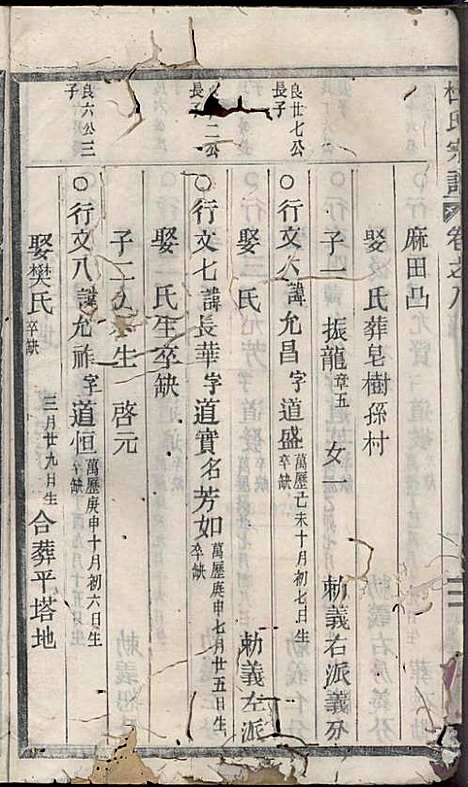 杜氏宗譜 卷之八
麻田凸
娶 氏葬皂樹孫村
子一 振龍章五 女一 勅義右派義分
良廿七公長子
○行文六諱允昌字道盛萬歷己未十月初七日生卒缺
娶 氏 勅義左派
二公長子
○行文七諱長華字道實名芳如萬歷庚申七月廿五日生卒缺
娶 氏生卒缺
子二 生 啓元
良六公三子
○行文八諱允祚字道恒萬歷庚申十月初六日生卒缺
娶樊氏三月廿九日生卒缺 合葬平塔地